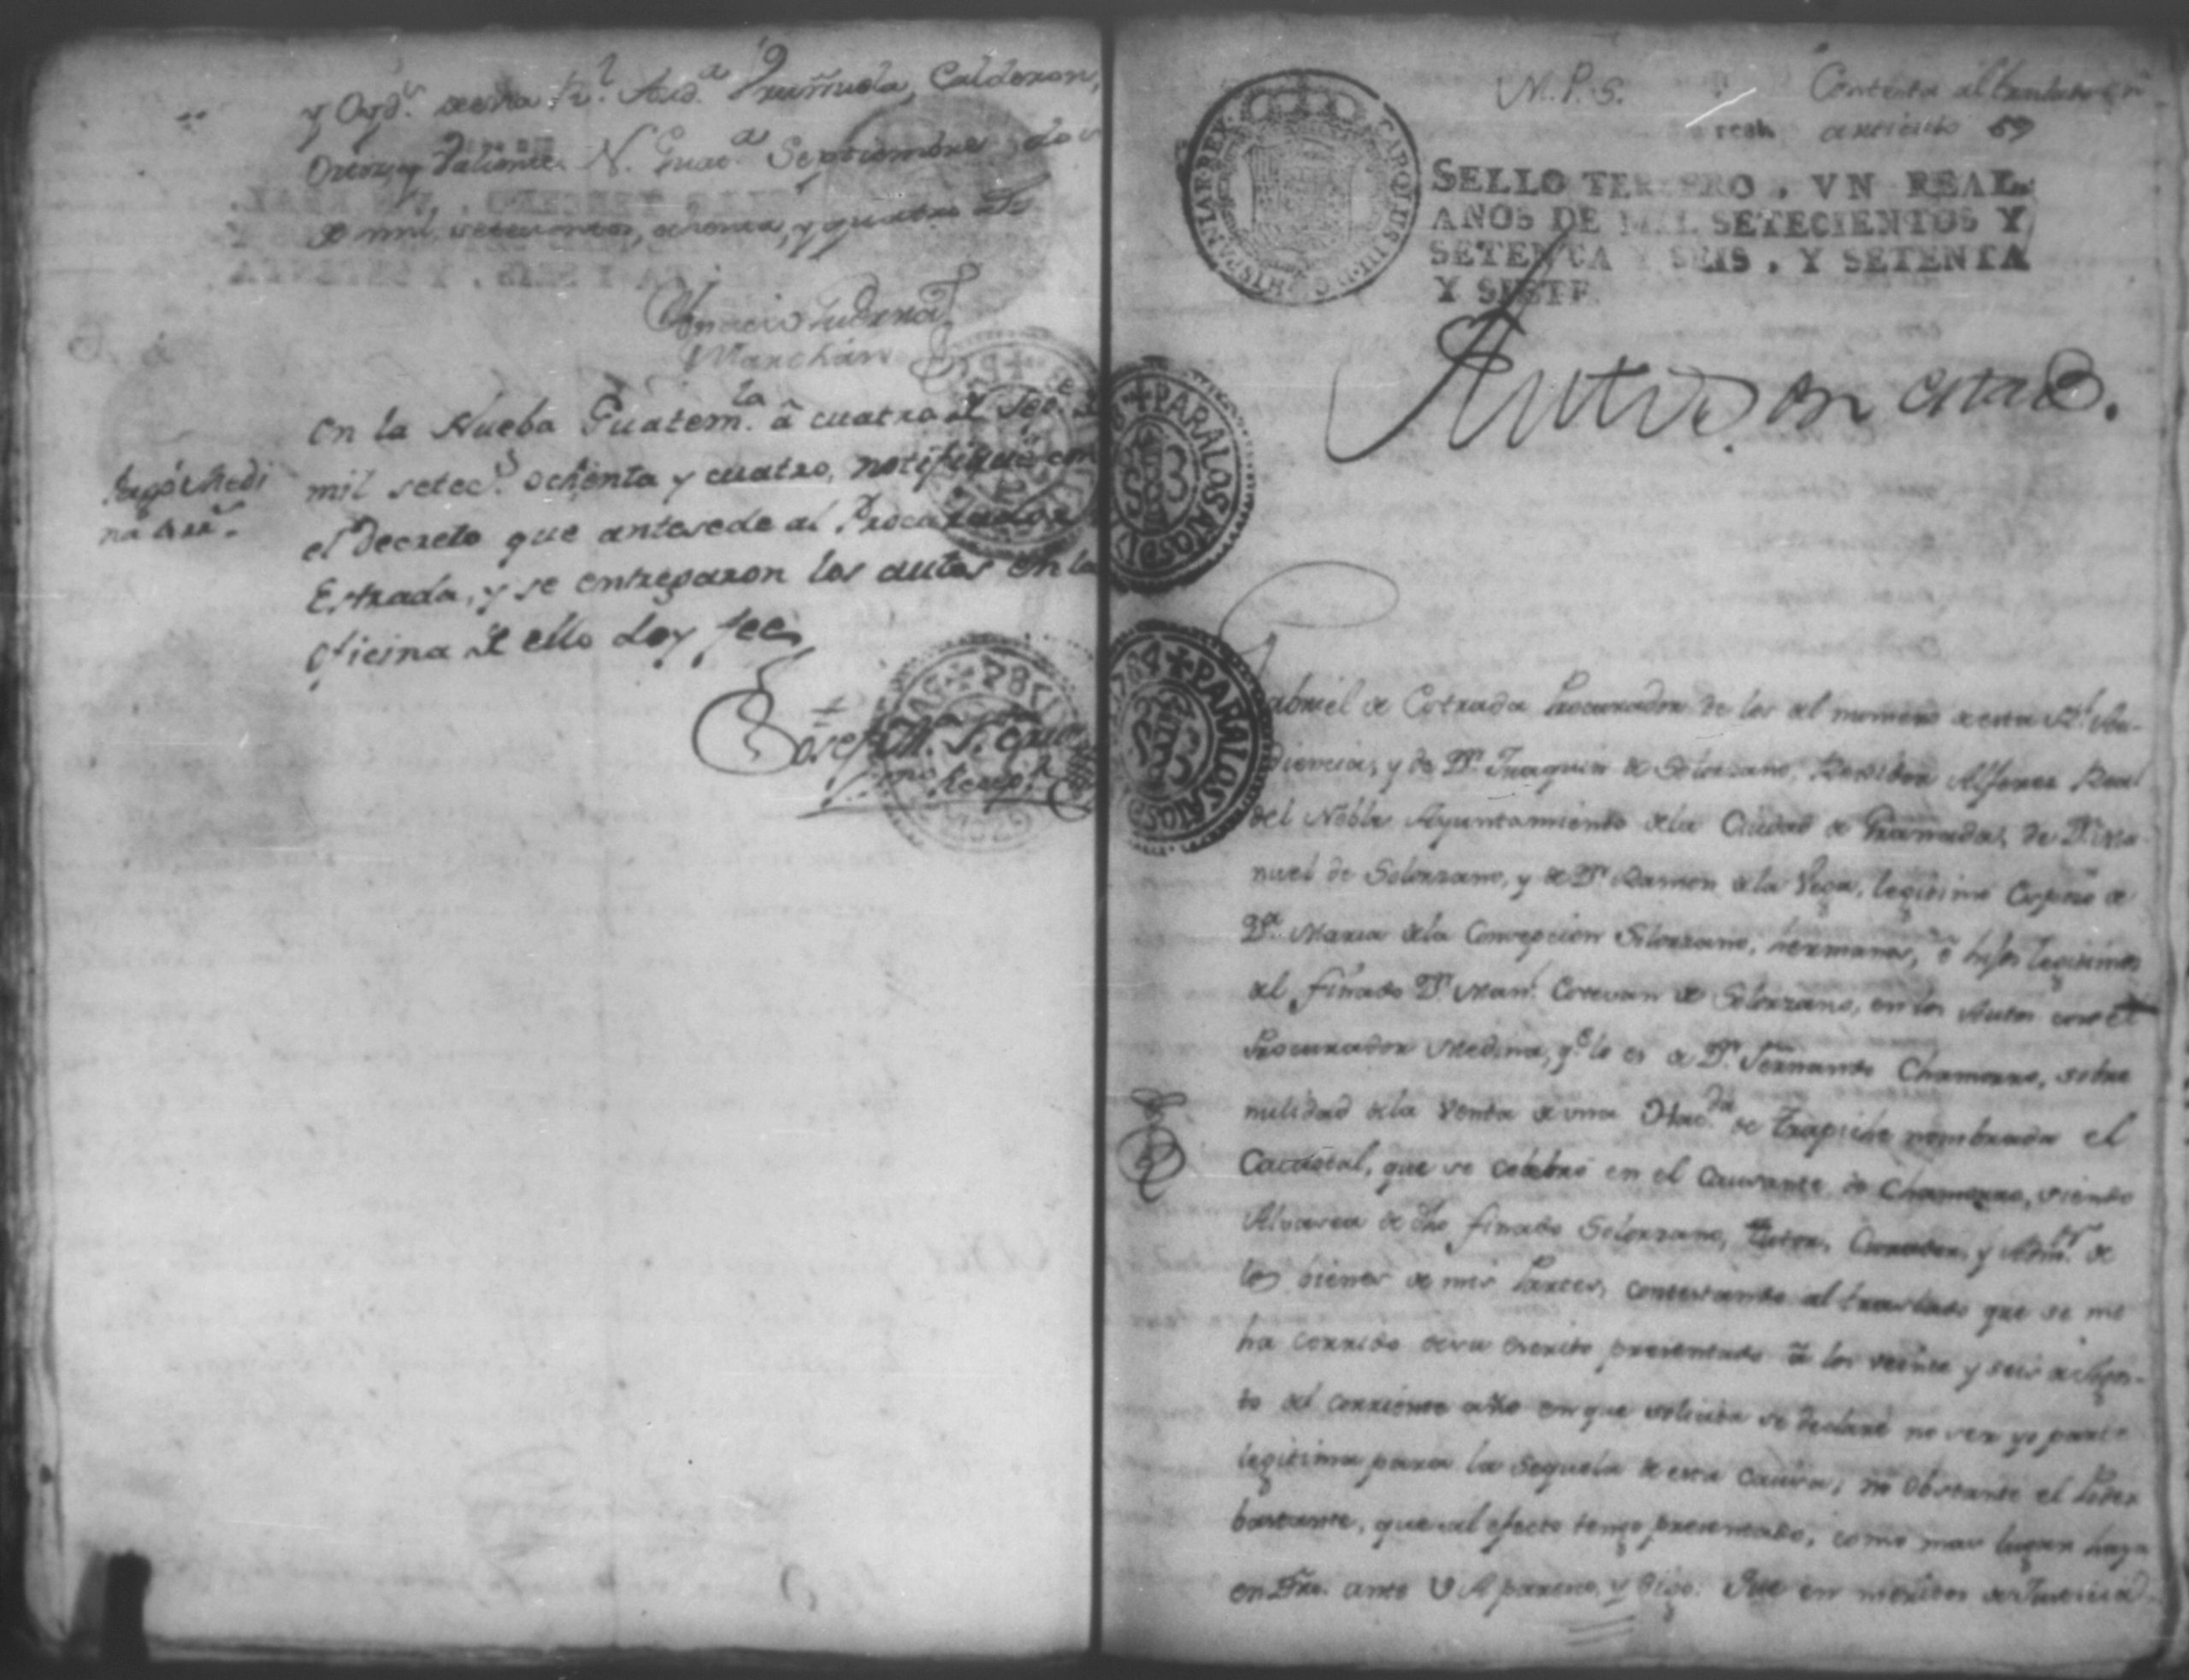 y Oyd.s de esta R.l Aud.a Pruñuela, Calderon,
Ortiz, y Valiente. N. Guat.a Septiembre dos
de mil setecientos, ochenta, y quatro
Ignacio Guerra
Marchan
En la Nueba Guatem.la â cuatro de Sep.e
mil setec.s ochenta y cuatro, notifique
el Decreto que antesede al Procurador
Estrada, y se entregaron los autos en la
oficina de ello doy fee
Pagó Medi
na
M.P.S.
Contesta al traslado
articulo 69
SELLO TERCERO, VN REAL.
AÑOS DE MIL SETECIENTOS Y
SETENTA Y SEIS, Y SETENTA
Y SIETE
CAROLUS III D G HISPANIAR REX
Autos en esta
1784 PARALOSAÑOSD
1784 PARALOSAÑOSD
Gabriel de Estrada Procurador de los del numero de esta R.l Au-
diencia, y de D.n Joaquin de Solorzano, Rexidor Alferez Real
del Noble Ayuntamiento de la Ciudad de Granada, de D.n Ma-
nuel de Solorzano, y de D.n Ramon de la Vega, legitimo Esposo de
D.a Maria de la Concepcion Solorzano, hermanos, é hijos legitimos
del finado D.n Man.l Estevan de Solorzano, en los Autos con el
Procurador Medina, q.e lo es de D.n Fernando Chamorro, sobre
nulidad de la Venta de una Hac.da de Trapiche nombrada el
Cacaotal, que se celebró en el Causante de Chamorro, siendo
Alvacea de dho finado Solorzano, Tutor, Curador, y Adm.or de
los bienes de mis Partes, contestando al traslado que se me
ha corrido de su escrito presentado â los veinte y seis de Agos-
to del corriente año en que solicita se declare no ser yo parte
legitima para la sequela de esta Causa, no obstante el Poder
bastante, que al efecto tengo presentado, como mas lugar haya
en Dño. ante V A paresco, y digo: Que en meritos de Justicia